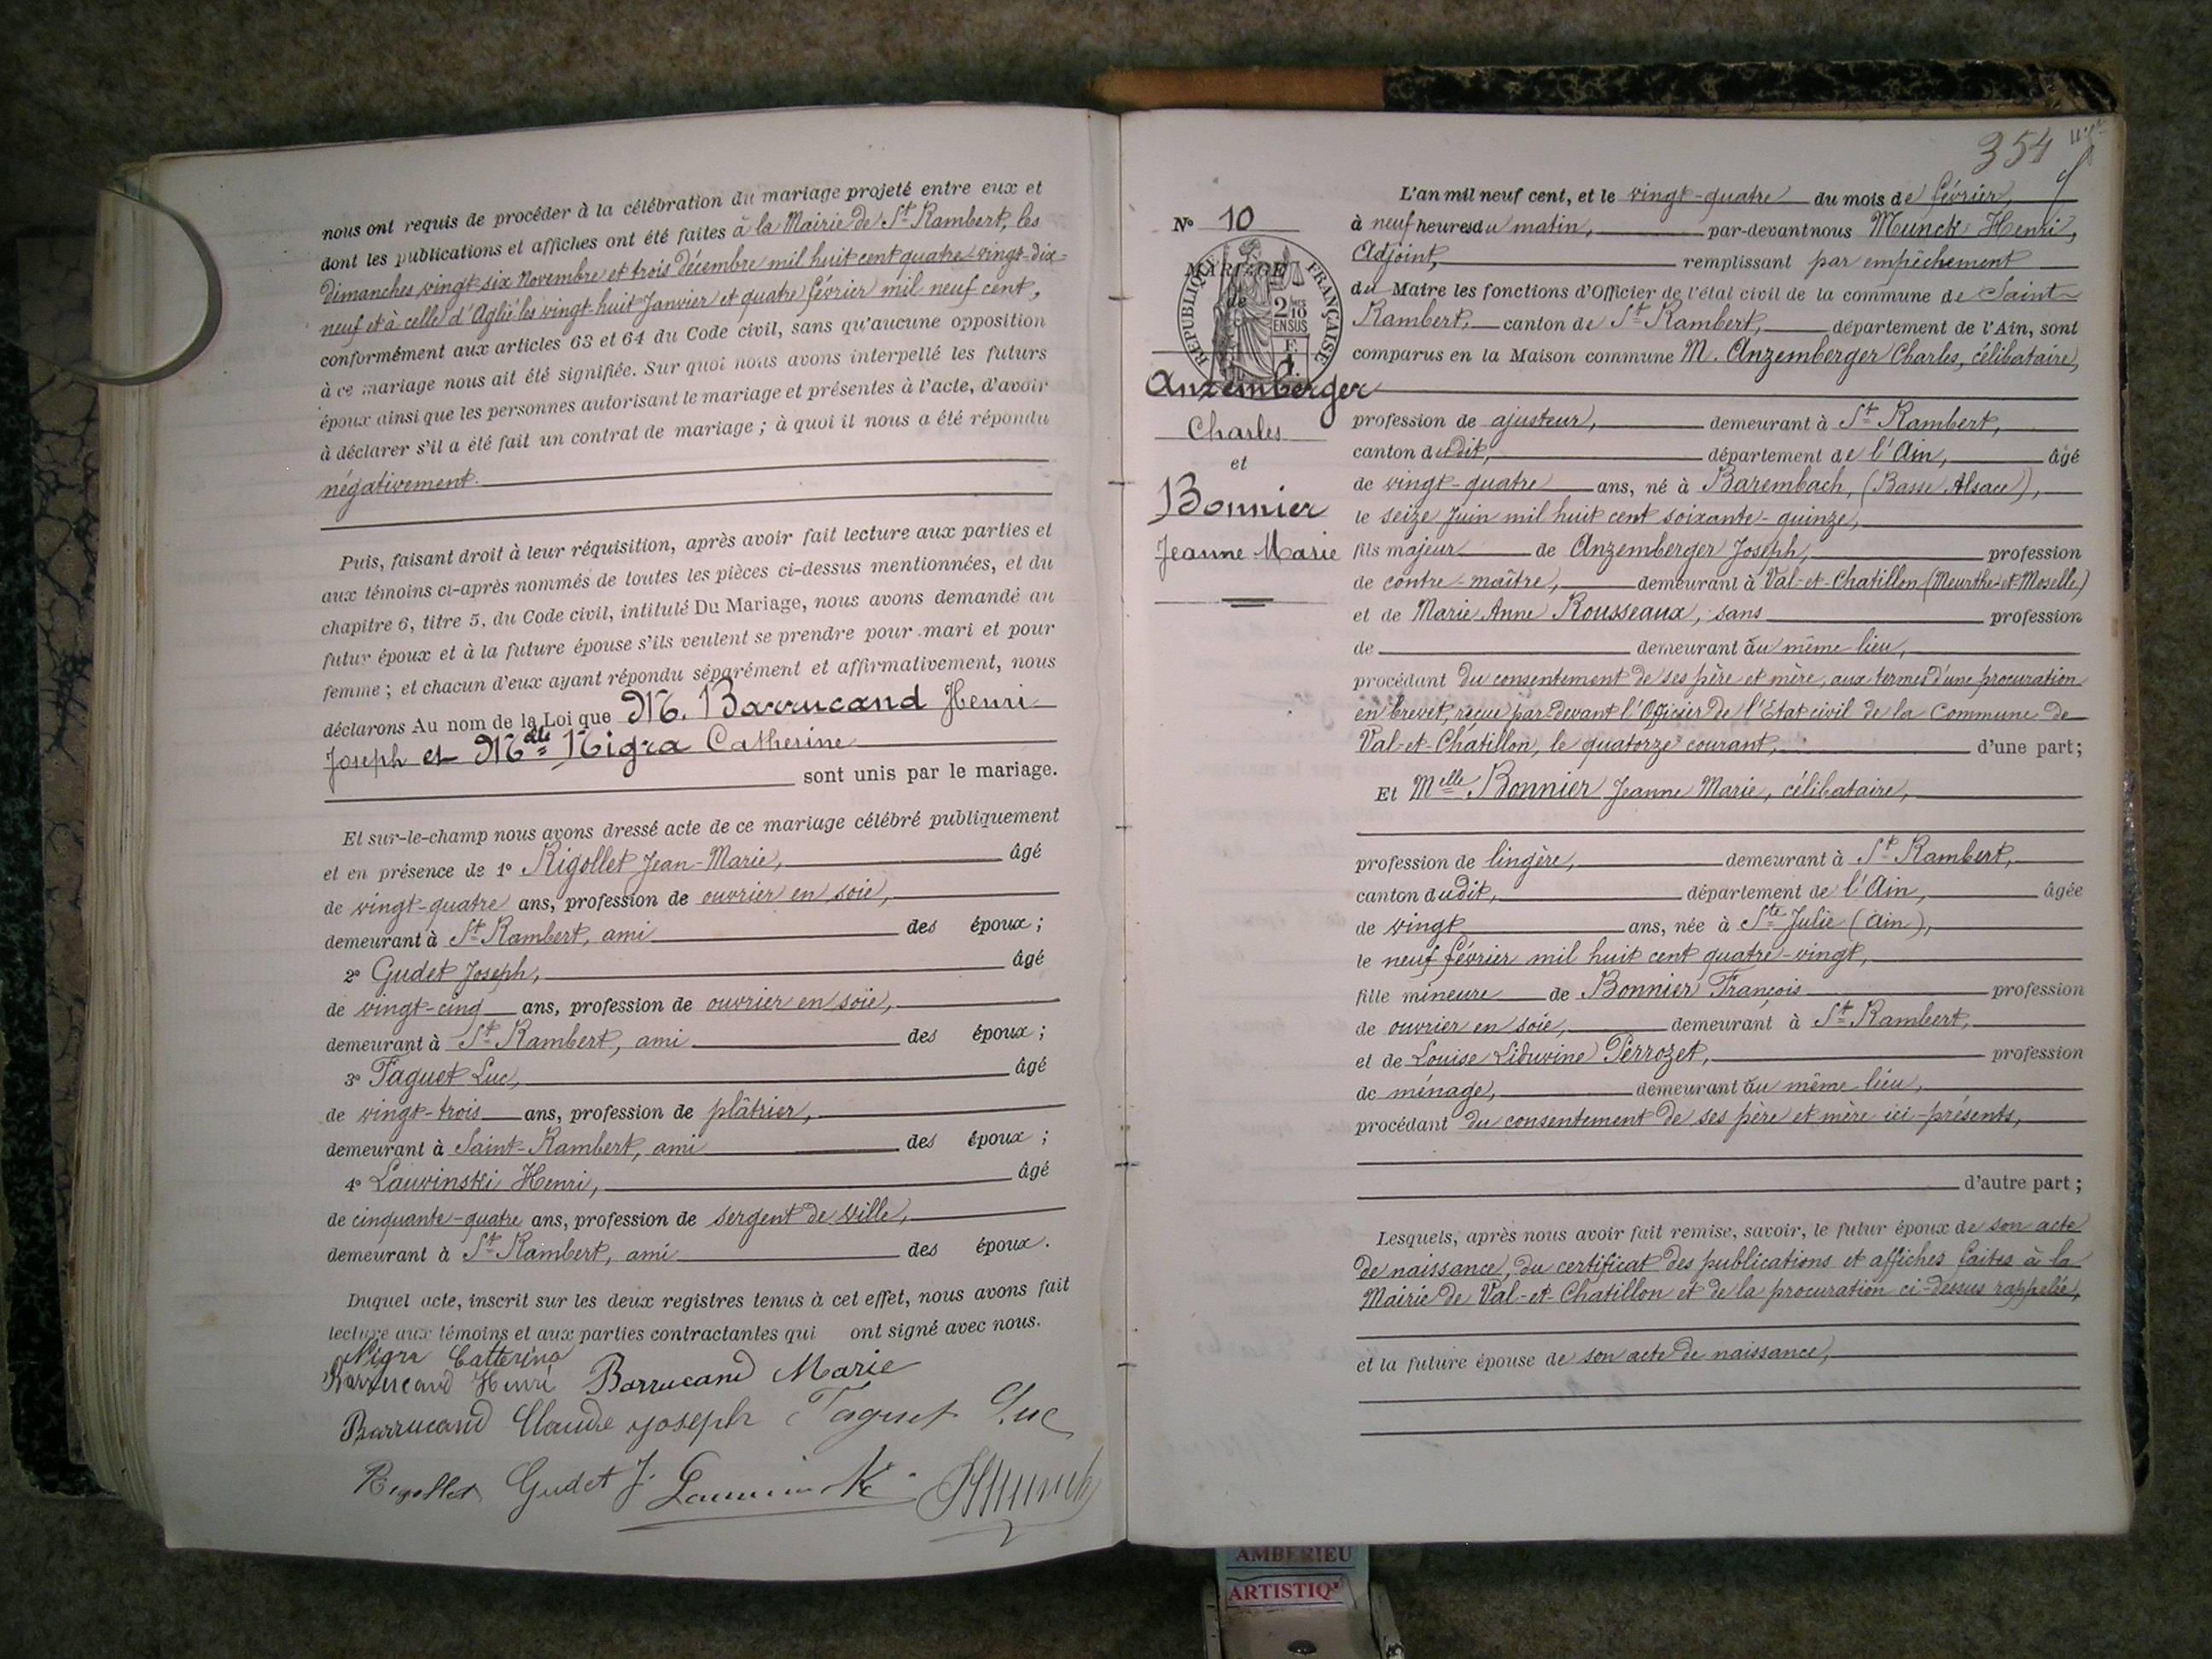 nous ont requis de procéder à la célébration du mariage projeté entre eux et
dont les publications et affiches ont été faites à la Mairie de St Rambert, les
dimanches vingt-six Novembre et trois décembre mil huit cent quatre-vingt-dix-
neuf et à celle d'Aglié les vingt-huit Janvier et quatre février mil neuf cent,
conformément aux articles 63 et 64 du Code civil, sans qu'aucune opposition
à ce mariage nous ait été signifiée. Sur quoi nous avons interpellé les futurs
époux ainsi que les personnes autorisant le mariage et présentes à l'acte, d'avoir
à déclarer s'il a été fait un contrat de mariage ; à quoi il nous a été répondu
négativement.
Puis, faisant droit à leur réquisition, après avoir fait lecture aux parties et
aux témoins ci-après nommés de toutes les pièces ci-dessus mentionnées, et du
chapitre 6, titre 5, du Code civil, intitulé Du Mariage, nous avons demandé au
futur époux et à la future épouse s'ils veulent se prendre pour mari et pour
femme ; et chacun d'eux ayant répondu séparément et affirmativement, nous
déclarons Au nom de la Loi que M. Barrucand Henri
Joseph et Mlle Nigra Catherine
sont unis par le mariage.
Et sur-le-champ nous avons dressé acte de ce mariage célébré publiquement
et en présence de 1º Rigollet Jean-Marie, âgé
de vingt-quatre ans, profession de ouvrier en soie,
demeurant à St Rambert, ami des époux ;
2º Gudet Joseph, âgé
de vingt-cinq ans, profession de ouvrier en soie,
demeurant à St Rambert, ami des époux ;
3º Taguet Luc, âgé
de vingt-trois ans, profession de plâtrier,
demeurant à Saint-Rambert, ami des époux ;
4º Lauvinski Henri, âgé
de cinquante-quatre ans, profession de sergent de ville,
demeurant à St Rambert, ami des époux.
Duquel acte, inscrit sur les deux registres tenus à cet effet, nous avons fait
lecture aux témoins et aux parties contractantes qui ont signé avec nous.
Nigra Catterina
Barrucand Henri Barrucand Marie
Barrucand Claude joseph Taguet Luc
Rigollet Gudet J.
354
Nº 10
MARIAGE
de
RÉPUBLIQUE FRANÇAISE
2/10 EN SUS
Anzemberger
Charles
et
Bonnier
Jeanne Marie
L'an mil neuf cent, et le vingt-quatre du mois de février,
à neuf heures du matin, par-devant nous Munck Henri,
Adjoint, remplissant par empêchement
du Maire les fonctions d'Officier de l'état civil de la commune de Saint-
Rambert, canton de St Rambert, département de l'Ain, sont
comparus en la Maison commune M. Anzemberger Charles, célibataire,
profession de ajusteur, demeurant à St Rambert,
canton dudit, département de l'Ain, âgé
de vingt-quatre ans, né à Barembach, (Basse Alsace),
le seize Juin mil huit cent soixante-quinze,
fils majeur de Anzemberger Joseph, profession
de contre-maître, demeurant à Val-et-Chatillon (Meurthe-et-Moselle)
et de Marie Anne Rousseaux, sans profession
de demeurant au même lieu,
procédant du consentement de ses père et mère, aux termes d'une procuration
en brevet, reçue par-devant l'Officier de l'Etat civil de la Commune de
Val-et-Châtillon, le quatorze courant, d'une part;
Et Melle Bonnier Jeanne Marie, célibataire,
profession de lingère, demeurant à St Rambert,
canton dudit, département de l'Ain, âgée
de vingt ans, née à Ste Julie (Ain),
le neuf février mil huit cent quatre-vingt,
fille mineure de Bonnier François profession
de ouvrier en soie, demeurant à St Rambert,
et de Louise Liduvine Perrozet, profession
de ménage, demeurant au même lieu,
procédant du consentement de ses père et mère ici-présents,
d'autre part ;
Lesquels, après nous avoir fait remise, savoir, le futur époux de son acte
de naissance, du certificat des publications et affiches faites à la
Mairie de Val-et-Chatillon et de la procuration ci-dessus rappelée,
et la future épouse de son acte de naissance,
AMBERIEU
ARTISTIQ